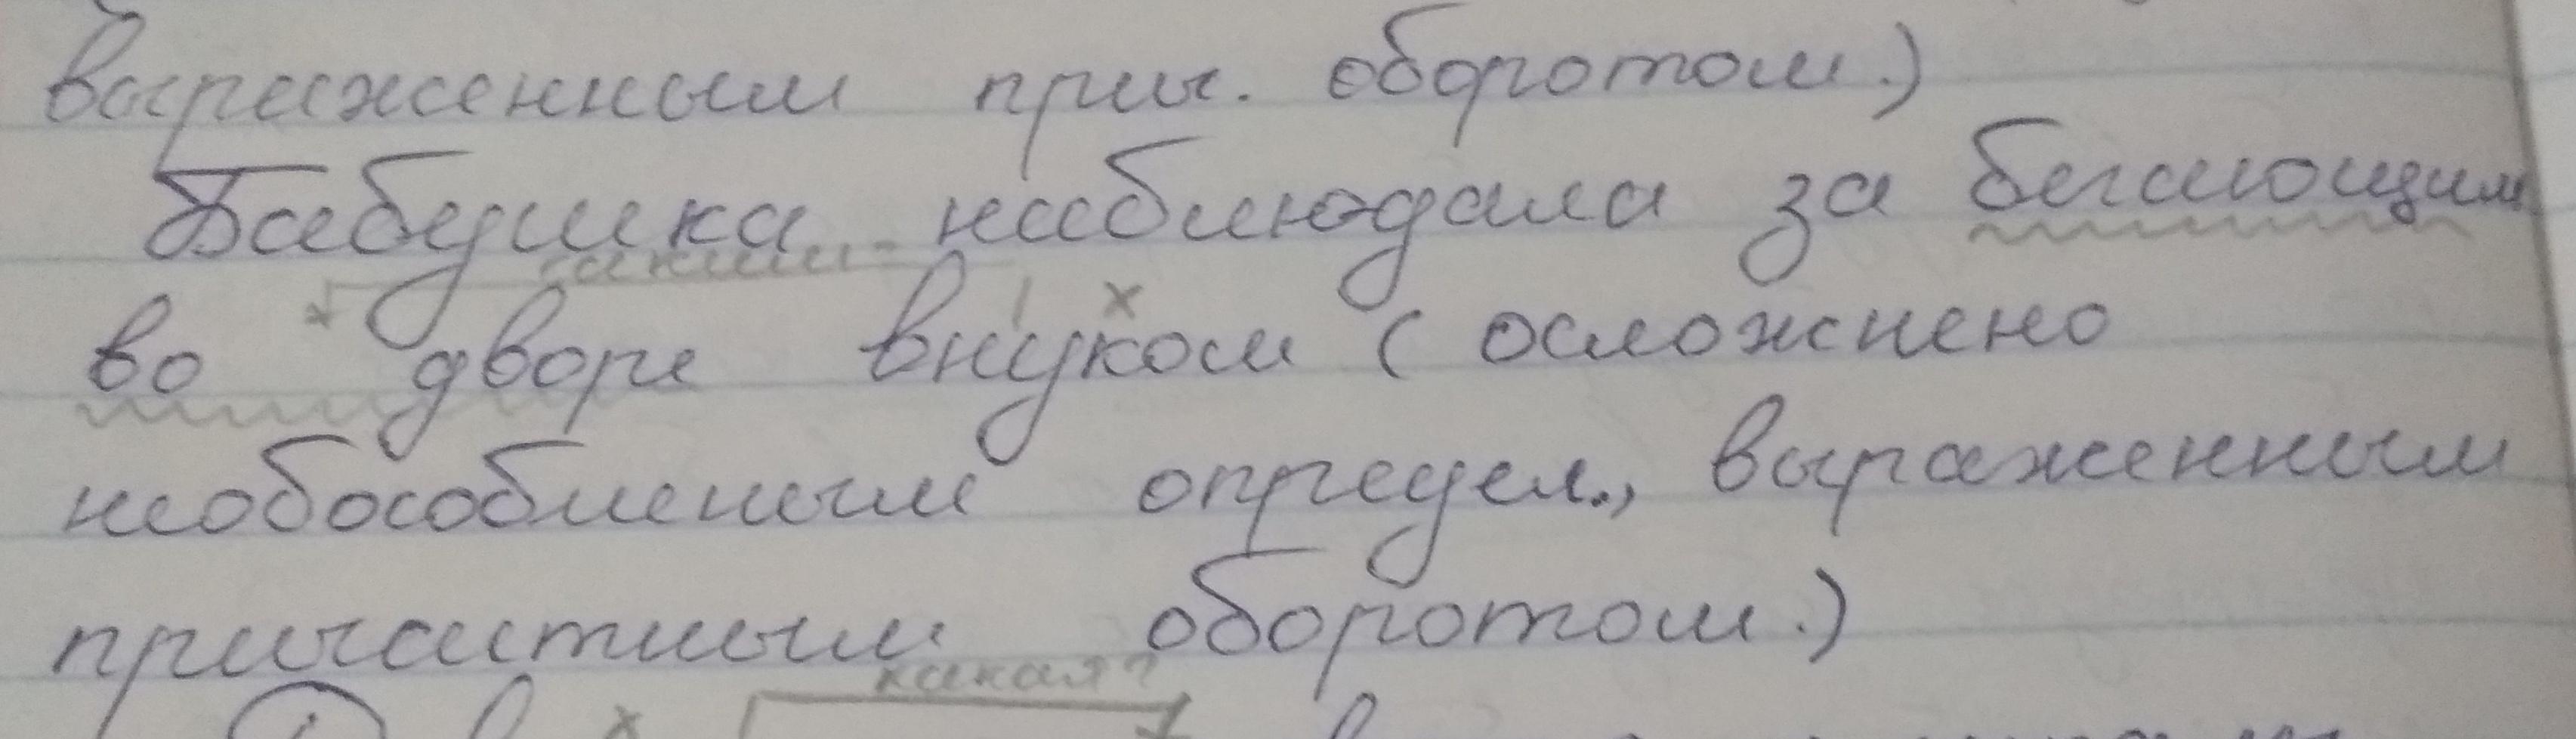 выраженным прич. оборотом.)
Бабушка наблюдала за бегающим
каким
х
во дворе внуком (осложнено
необособленым определ., выраженным
причастным оборотом.)
какая?
х